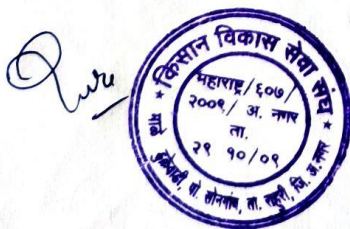 किसान विकास सेवा संघ
महाराष्ट्र/६०७/
२००९/ अ. नगर
ता.
२९ १०/०९
पो सोनगांव, ता. राहुरी, जि. अ.नगर